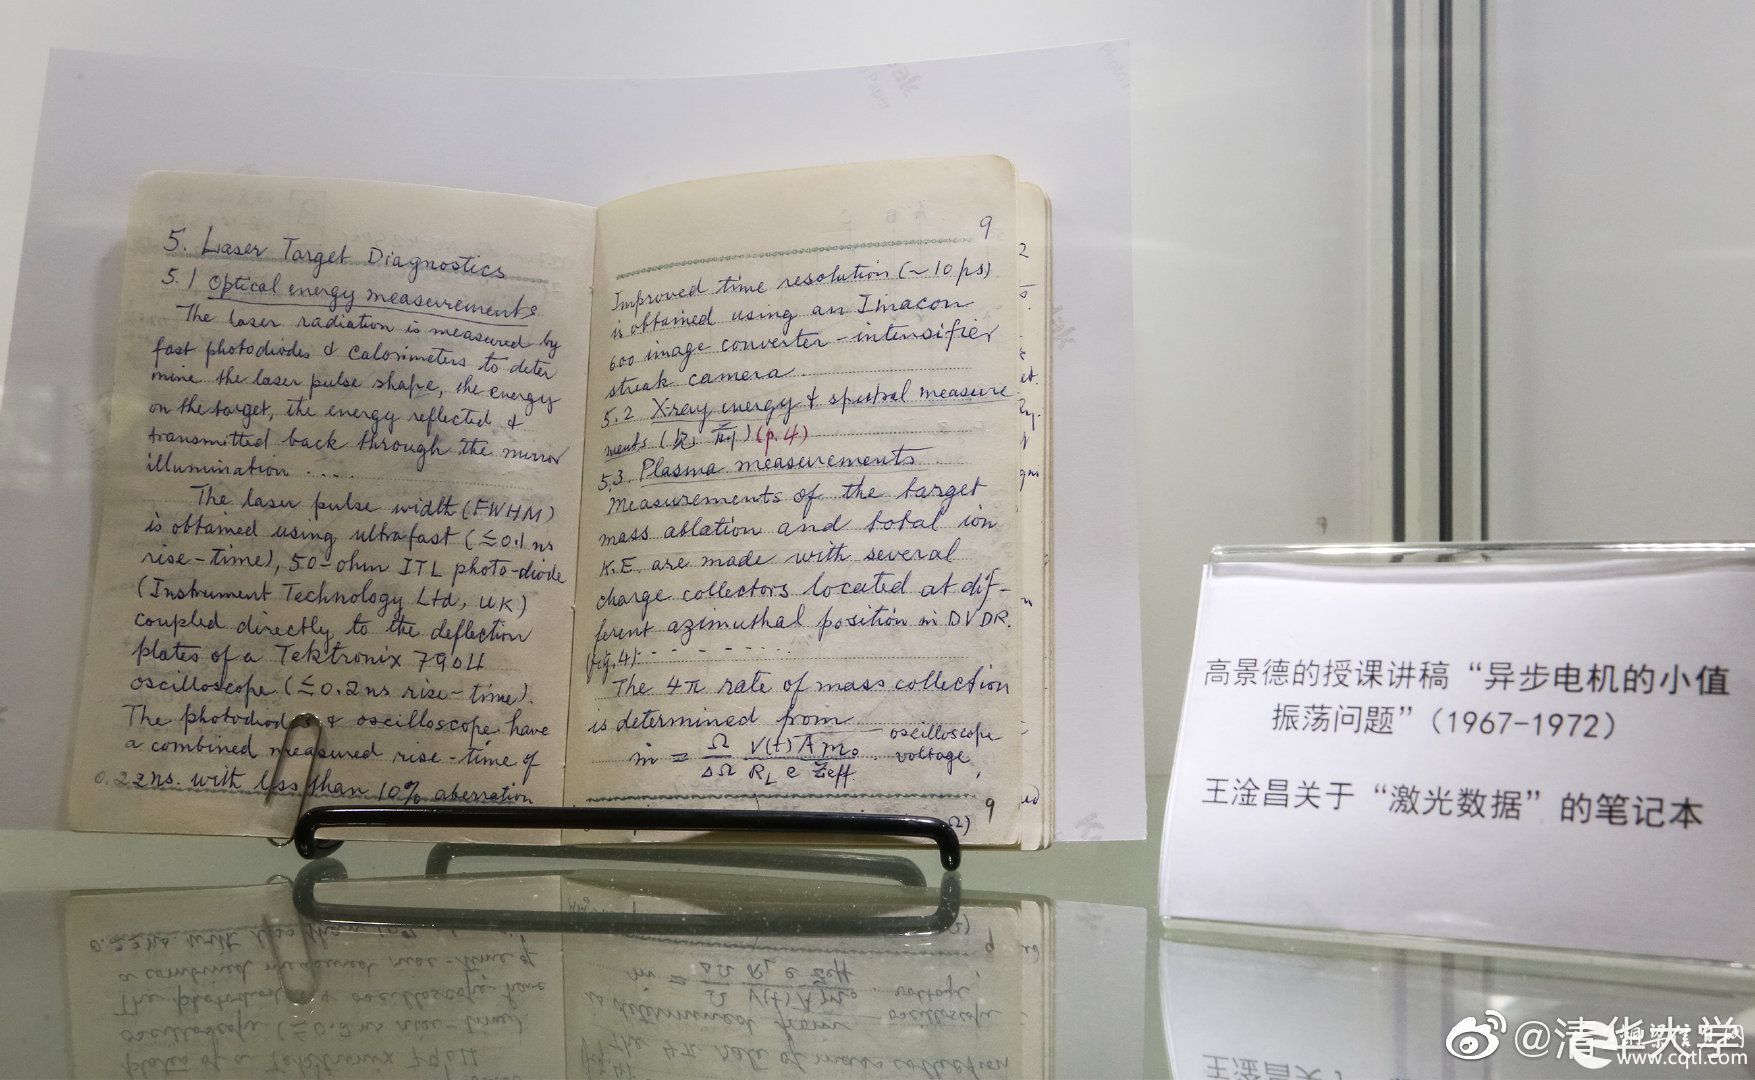 5. Laser Target Diagnostics
5.1 Optical energy measurements
The laser radiation is measured by
fast photodiodes & calorimeters to deter
mine the laser pulse shape, the energy
on the target, the energy reflected &
transmitted back through the mirror
illumination ....
The laser pulse width (FWHM)
is obtained using ultrafast (≤0.1 ns
rise-time), 50-ohm ITL photo-diode
(Instrument Technology Ltd, UK)
coupled directly to the deflection
plates of a Tektronix 7904
oscilloscope (≤0.2 ns rise-time).
The photodiodes & oscilloscope have
a combined measured rise-time of
0.22 ns. with less than 10% aberration
9
Improved time resolution (~10 ps)
is obtained using an Imacon
600 image converter-intensifier
streak camera.
5.2 X-ray energy & spectral measure
ments (p.4)
5.3. Plasma measurements
Measurements of the target
mass ablation and total ion
K.E. are made with several
charge collectors located at dif-
ferent azimuthal position in DVDR.
(fig.4) - - - - - - - -
The 4π rate of mass collection
is determined from
ṁ = Ω/ΔΩ V(t) A m₀ / R_L e Z̄eff . oscilloscope voltage,
9
高景德的授课讲稿“异步电机的小值
振荡问题”（1967-1972）
王淦昌关于“激光数据”的笔记本
@清华大学
www.cqtl.com